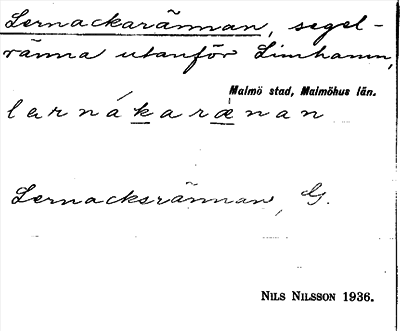 Lernackarännan, segel-
ränna utanför Limhamn,
Malmö stad, Malmöhus län.
larnákarænan
Lernacksrännan,
NILS NILSSON 1936.